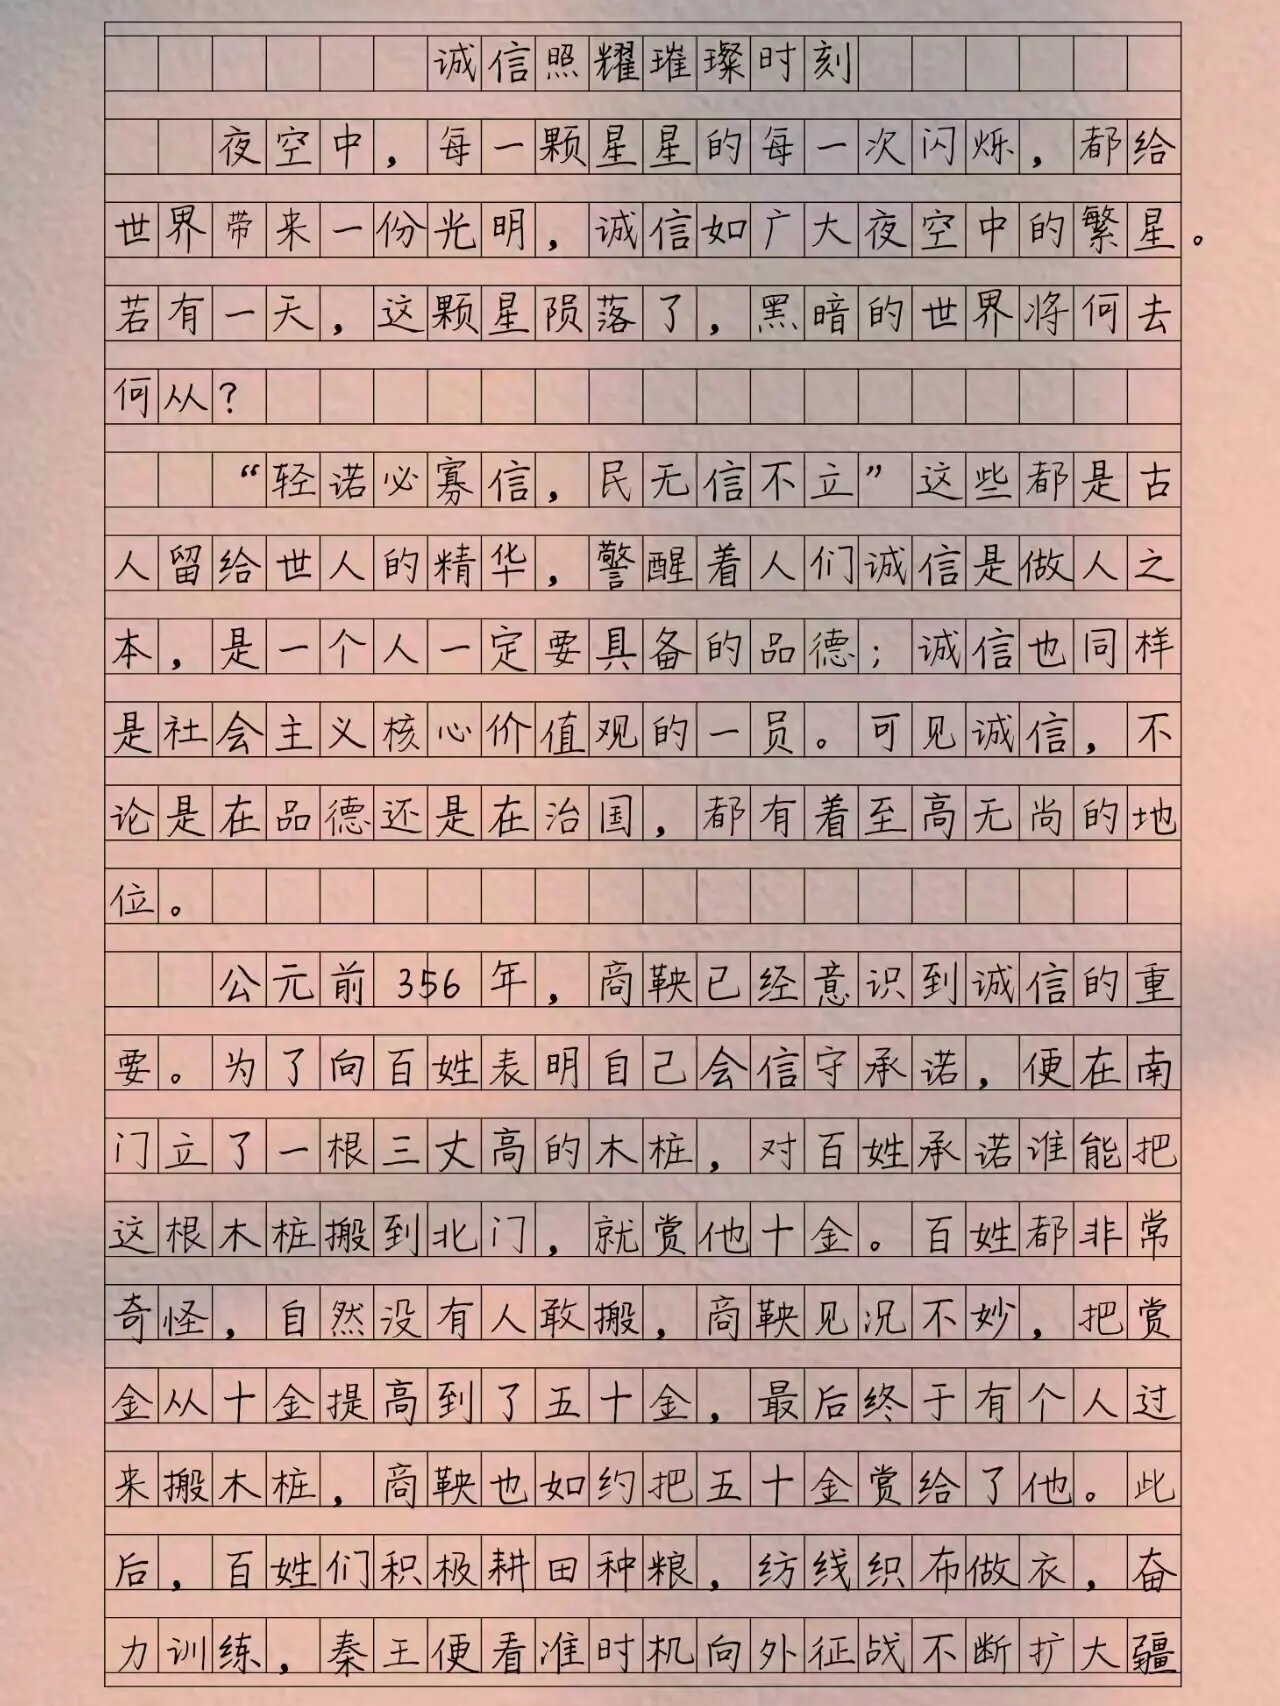 诚信照耀璀璨时刻
夜空中，每一颗星星的每一次闪烁，都给
世界带来一份光明，诚信如广大夜空中的繁星。
若有一天，这颗星陨落了，黑暗的世界将何去
何从？
“轻诺必寡信，民无信不立”这些都是古
人留给世人的精华，警醒着人们诚信是做人之
本，是一个人一定要具备的品德；诚信也同样
是社会主义核心价值观的一员。可见诚信，不
论是在品德还是在治国，都有着至高无尚的地
位。
公元前356年，商鞅已经意识到诚信的重
要。为了向百姓表明自己会信守承诺，便在南
门立了一根三丈高的木桩，对百姓承诺谁能把
这根木桩搬到北门，就赏他十金。百姓都非常
奇怪，自然没有人敢搬，商鞅见况不妙，把赏
金从十金提高到了五十金，最后终于有个人过
来搬木桩，商鞅也如约把五十金赏给了他。此
后，百姓们积极耕田种粮，纺线织布做衣，奋
力训练，秦王便看准时机向外征战不断扩大疆